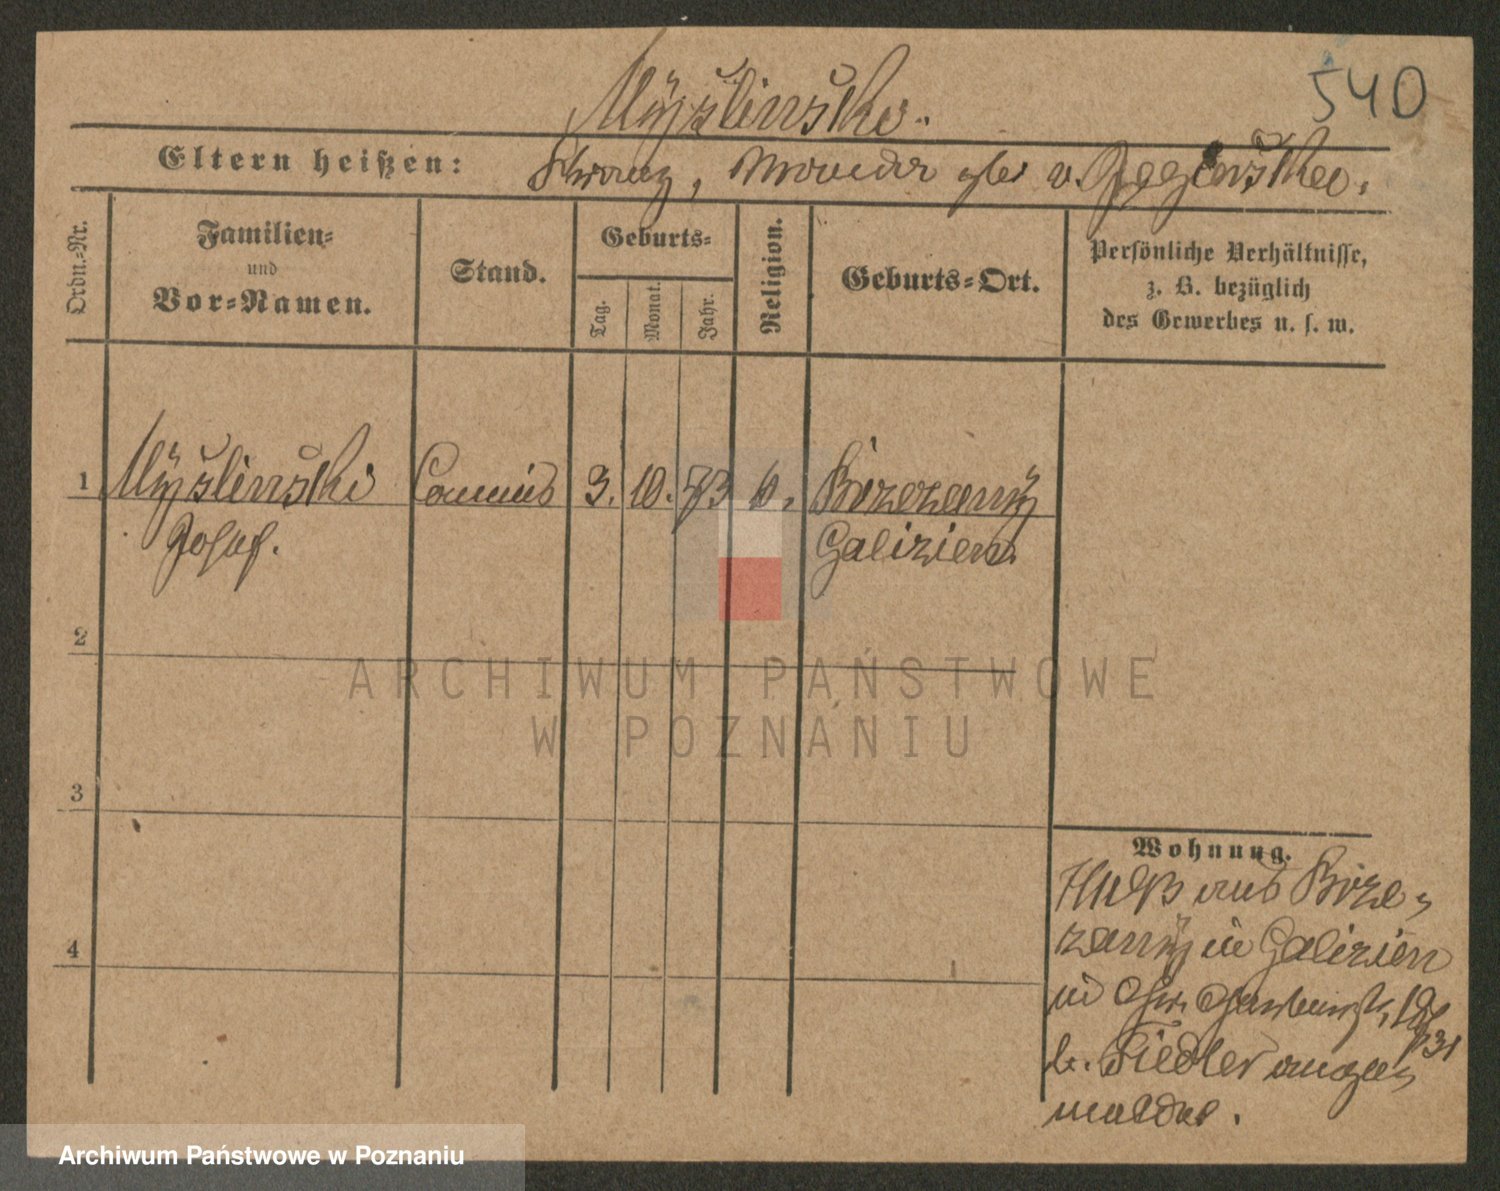 Myśliński.
540
Eltern heißen:
Franz, v.
Ordn.-Nr.
Familien-
und
Vor-Namen.
Stand.
Geburts-
Tag.
Monat.
Jahr.
Religion.
Geburts-Ort.
Persönliche Verhältnisse,
z. B. bezüglich
des Gewerbes u. s. w.
1 Myśliński Commis 3. 10. 73 k. Brzezany
Josef. Galizien.
2
3
4
Wohnung.
aus Brze-
zany in Galizien
b. Fiedler ange-
meldet.
ARCHIWUM PAŃSTWOWE
W POZNANIU
Archiwum Państwowe w Poznaniu